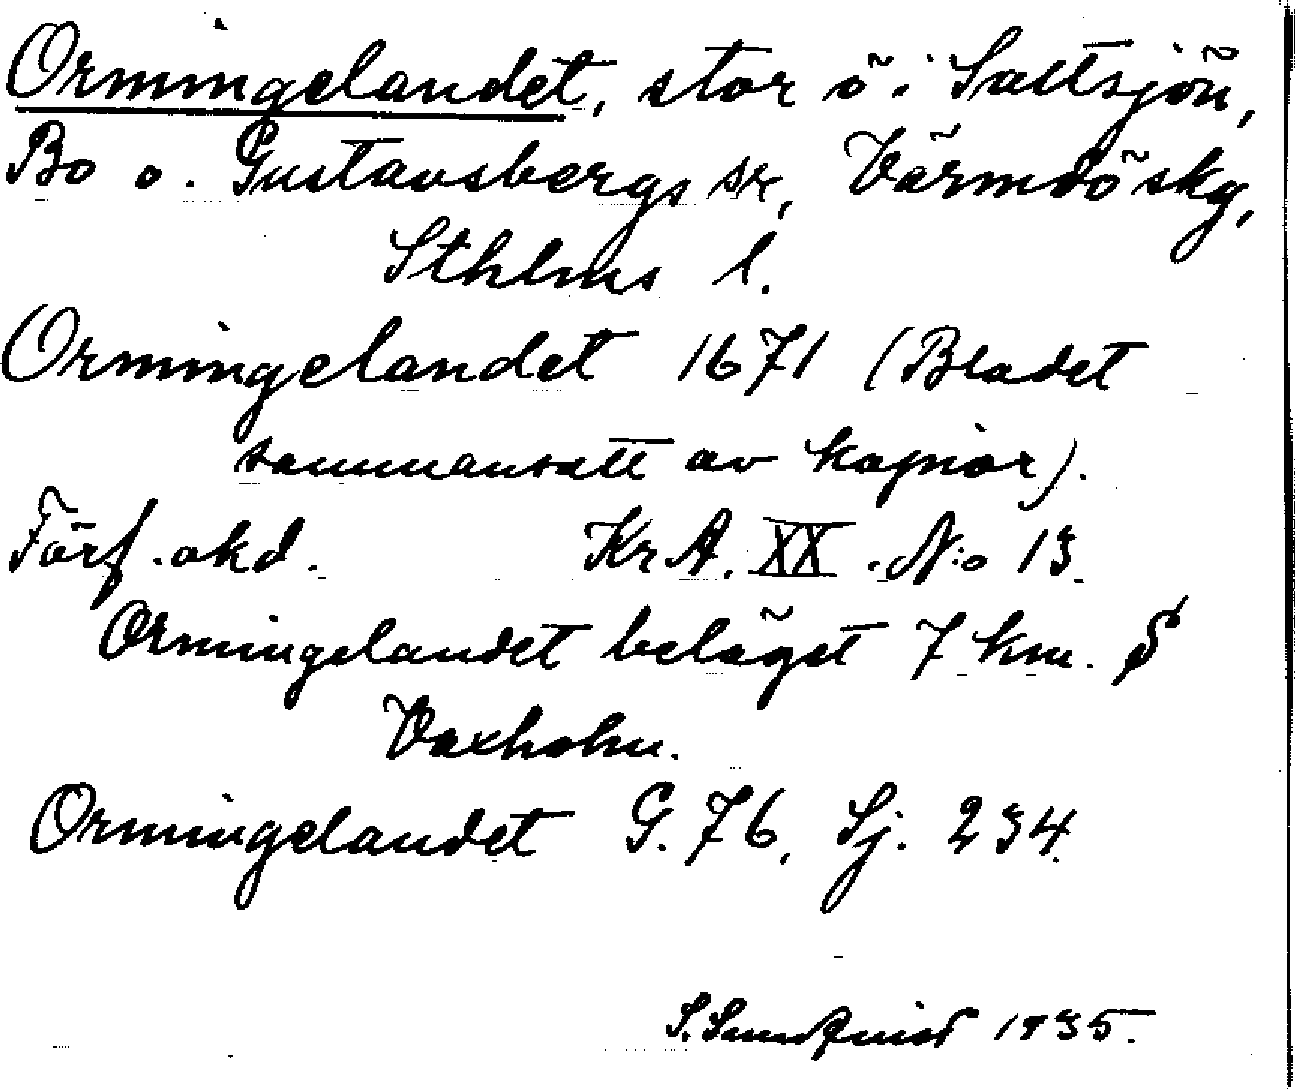 Ormingelandet, stor ö i Saltsjön,
Bo o. Gustavsbergs sk, Värmdö skg,
Sthlms l.
Ormingelandet 1671 (Bladet
sammansatt av kopior).
Förf. okd. Kr A. XX. N:o 13
Ormingelandet beläget 7 km. S
Vaxholm.
Ormingelandet G. 76, Sj. 234
S. Sundquist 1935.